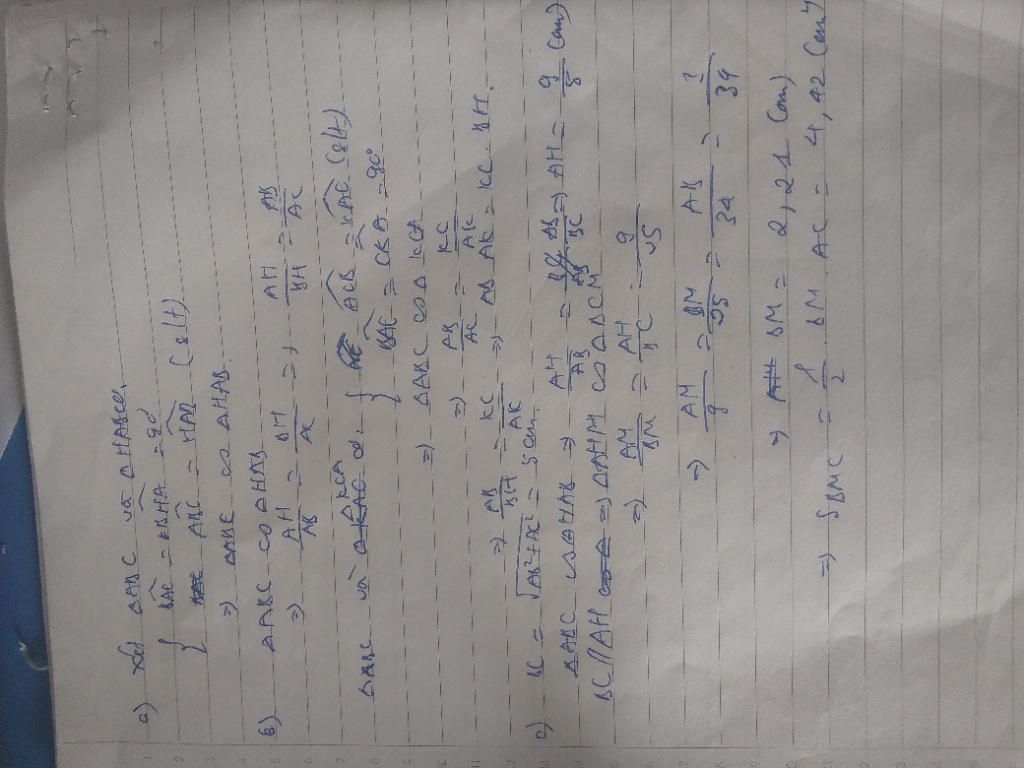 a) Xét ΔABC và ΔHAB có:
{ BAC = BHA = 90°
ABC = HAB (slt)
=> ΔABC ∽ ΔHAB.
b) ΔABC ∽ ΔHAB
=> AH/AB = BH/AC => AH/BH = AB/AC
ΔABC và ΔKCA có: { ACB = KAC (slt)
BAC = CKA = 90°
=> ΔABC ∽ Δ KCA
=> AB/AC = KC/AK
=> AB/BH = KC/AK => AB AK = KC . BH.
c) BC = √AB²+AC² = 5 cm.
ΔABC ∽ ΔHAB => AH/AB = AB/BC => AH = 9/5 (cm)
BC // AH => ΔAHM ∽ ΔBCM
=> AM/BM = AH/BC = 9/25
=> AM/9 = BM/25 = AB/34 = 3/34
=> BM = 2,21 (cm)
=> SBMC = 1/2 BM . AC = 4,42 (cm²)